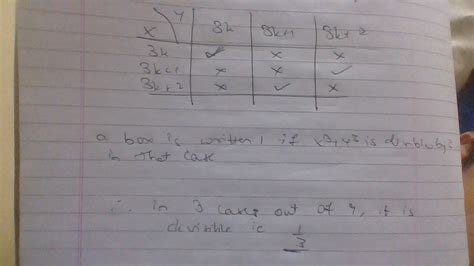 x y 3k 3k+1 3k+2
3k ✓ x x
3k+1 x x ✓
3k+2 x ✓ x
a box is written, if x³+y³ is
in that case
∴ in 3 cases out of 9, it is
divisible ie 1/3